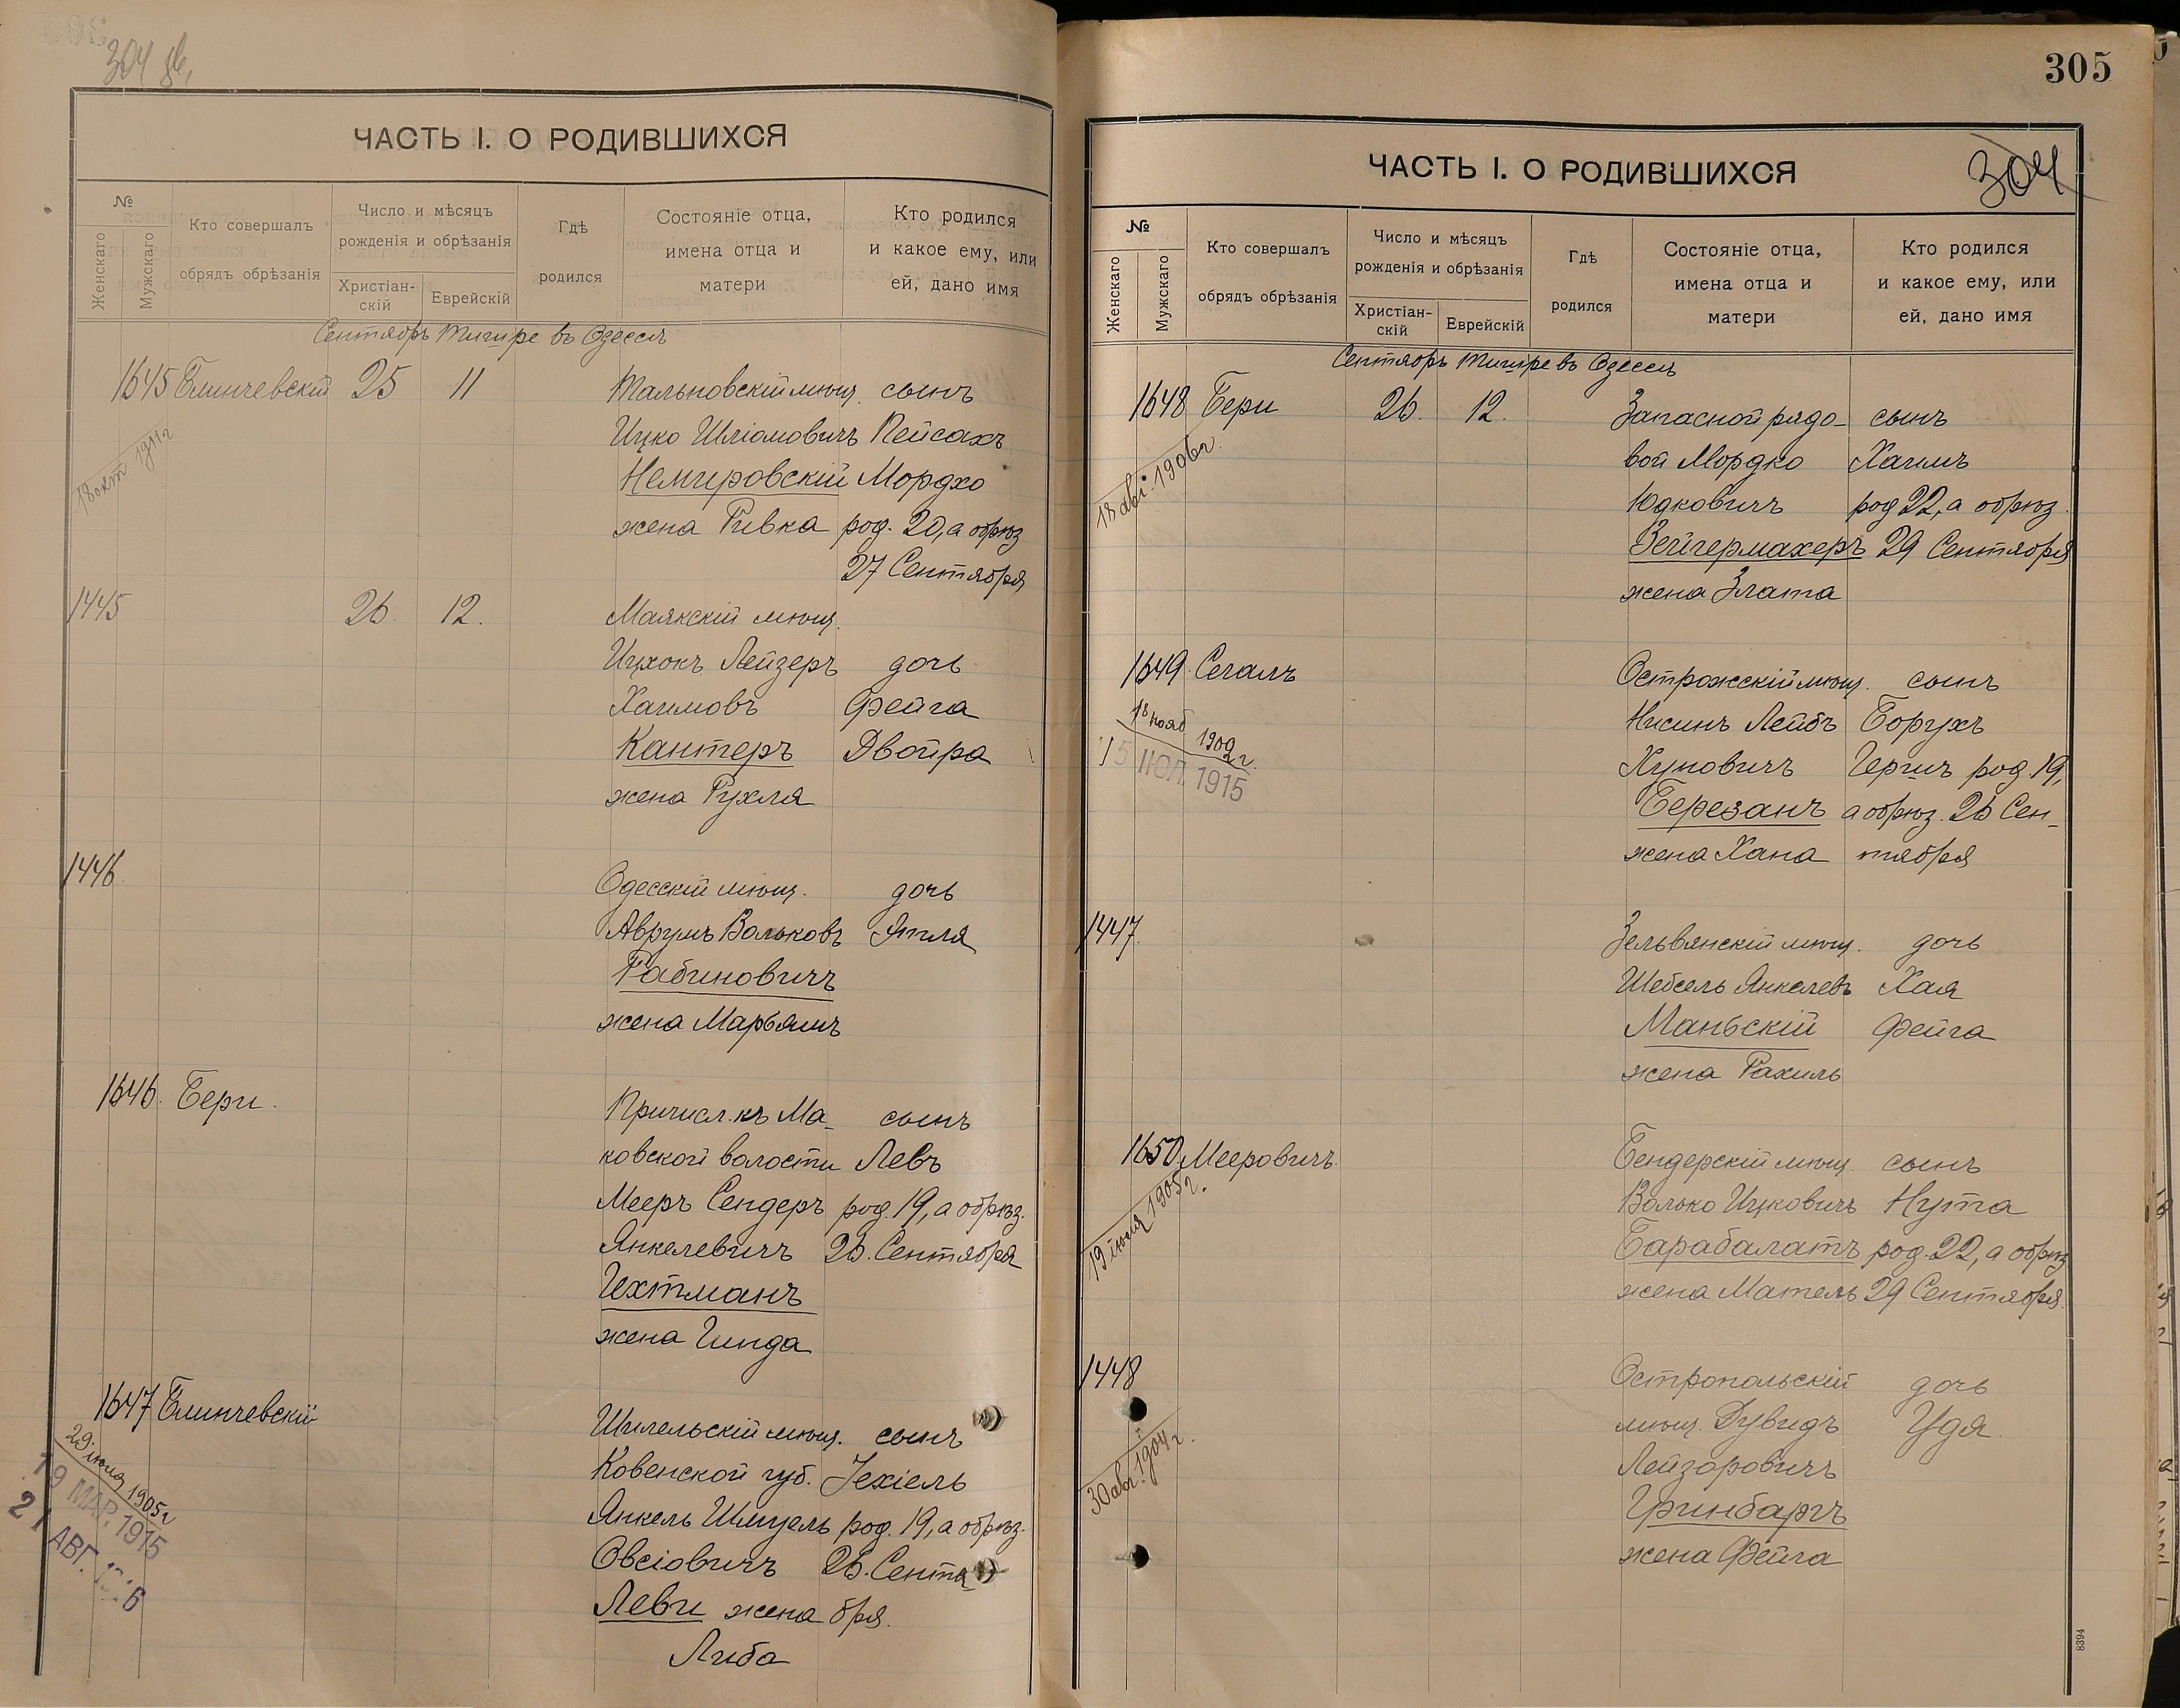 304 об.
ЧАСТЬ I. О РОДИВШИХСЯ
№
Женскаго
Мужскаго
Кто совершалъ
обрядъ обрѣзанія
Число и мѣсяцъ
рожденія и обрѣзанія
Христіан-
скій
Еврейскій
Гдѣ
родился
Состояніе отца,
имена отца и
матери
Кто родился
и какое ему, или
ей, дано имя
Сентябрь Тишре въ Одессѣ
1645 Блинчевскій 25 11 Тальновскій мѣщ. сынъ
Ицко Шліомовичъ Пейсахъ
Немировскій Мордхо
жена Ривка род. 20, а обрѣз
27 Сентября
18 окт 1911 г
1445 26. 12. Маякскій мѣщ.
Ицхокъ Лейзеръ дочь
Хаимовъ Фейга
Кантеръ Двойра
жена Рухля
1446. Одесскій мѣщ. дочь
Аврумъ Вольковъ Этля
Рабиновичъ
жена Марьямъ
1646. Бери. Причисл. къ Ма- сынъ
ковской волости Левъ
Мееръ Сендеръ род. 19, а обрѣз.
Янкелевичъ 26. Сентября
Гехтманъ
жена Гинда
1647 Блинчевскій Шилельскій мѣщ. сынъ
Ковенской губ. Іехіель
Янкель Шмуель род. 19, а обрѣз.
Овсіовичъ 26. Сентя-
Леви жена бря.
Либа
1905 г
19 МАР. 1915
21 АВГ.
305
304
ЧАСТЬ I. О РОДИВШИХСЯ
№
Женскаго
Мужскаго
Кто совершалъ
обрядъ обрѣзанія
Число и мѣсяцъ
рожденія и обрѣзанія
Христіан-
скій
Еврейскій
Гдѣ
родился
Состояніе отца,
имена отца и
матери
Кто родился
и какое ему, или
ей, дано имя
Сентябрь Тишре въ Одессѣ
1648 Бери 26. 12. Запасной рядо- сынъ
вой Мордко Хаимъ
Юдковичъ род 22, а обрѣз.
Зейгермахеръ 29 Сентября
жена Злата
18 авг. 1906 г.
1649. Сегалъ Острожскій мѣщ. сынъ
Нисинъ Лейбъ Борухъ
Хуновичъ Гершъ род. 19,
Березанъ а обрѣз. 26 Сен-
жена Хана тября
18 нояб 1909 г.
15 ІЮЛ. 1915
1447. Зельвянскій мѣщ. дочь
Шебсель Янкелевъ Хая
Маньскій Фейга
жена Рахиль
1650. Мееровичъ. Бендерскій мѣщ. сынъ
Волько Ицковичъ Нута
Барабалатъ род. 22, а обрѣз
жена Матель 29 Сентября.
1905 г.
1448 Остропольскій дочь
мѣщ. Дувидъ Удя.
Лейзоровичъ
Гринбаргъ
жена Фейга
30 авг. 1904 г.
8394